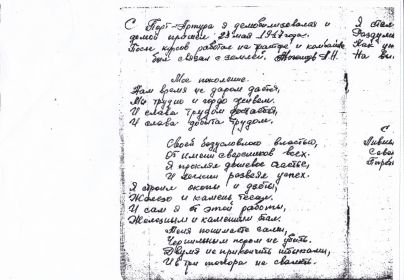 С Порт-Артура я демобилизовался и
домой пришёл 23 мая 1947 года.
После курсов работал на тракторе и комбайне
был связан с землёй.
Мое поколение.
Нам время не даром даётся,
Мы трудно и гордо живем.
И слава трудом достаётся,
И слава добыта трудом.
Своей безусловною властью,
От имени сверстников всех.
Я проклял дешевое счастье,
И легкий развеял успех.
Я строил окопы и доты,
Железо и камень тесал.
И сам я от этой работы,
Железным и каменным стал.
Меня понимаете сами,
Чернильным пером не убить.
Двумя не прикончить штыками,
И в три топора не свалить.
Я стал
На
С